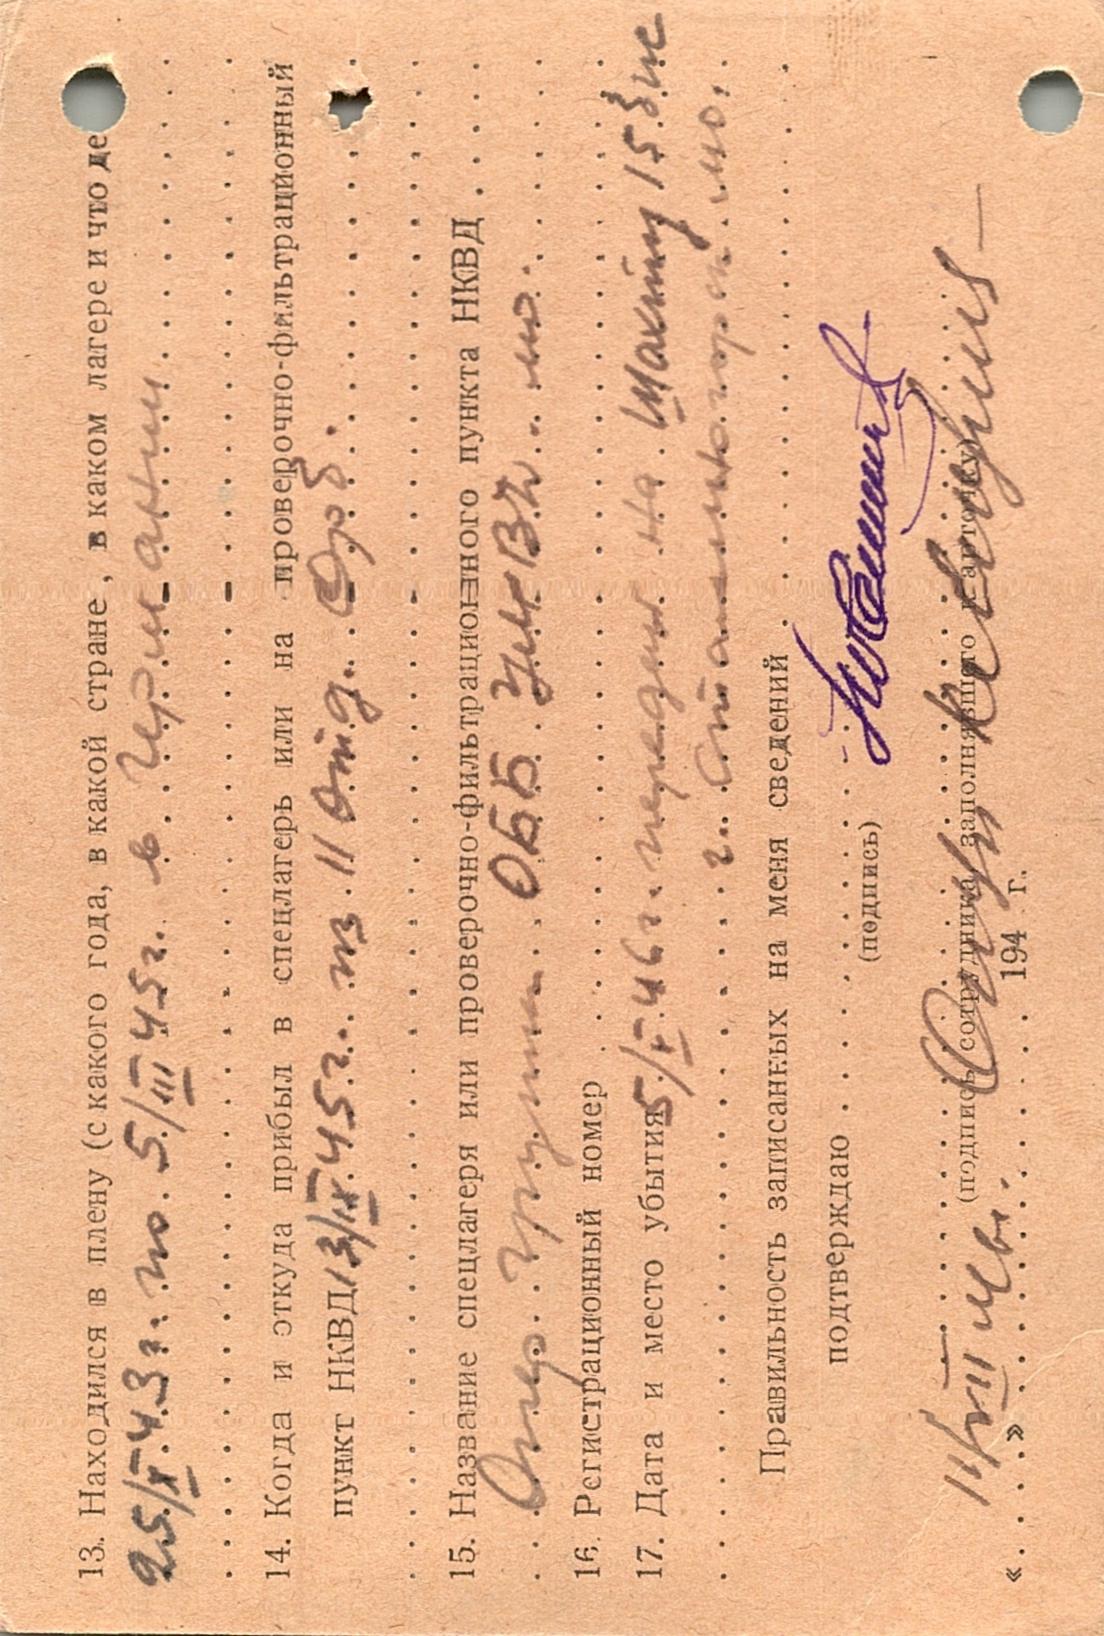 13. Находился в плену (с какого года, в какой стране, в каком лагере и что де
25/X 43 г. по 5/III 45 г. в Германии
14. Когда и откуда прибыл в спецлагерь или на проверочно-фильтрационный
пункт НКВД 13/IX 45 г. из 11 отд. Орб.
15. Название спецлагеря или проверочно-фильтрационного пункта НКВД
Опер. группа ОББ УМВД мо.
16. Регистрационный номер
17. Дата и место убытия 5/I 46 г. передан на шахту 15
г. Сталиногорск мо.
Правильность записанных на меня сведений
подтверждаю
(подпись)
(подпись сотрудника, заполнявшего карточку)
« » 194 г.